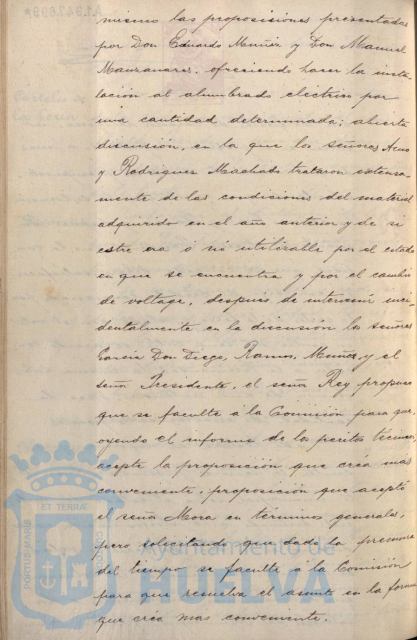 mismo las proposiciones presentadas
por Don Eduardo Muñiz y Don Manuel
Manzanares, ofreciendo hacer la insta-
lación al alumbrado eléctrico por
una cantidad determinada; abierta
discusión, en la que los señores
y Rodriguez Machado trataron extensa-
mente de las condiciones del material
adquirido en el año anterior y de si
este era ó nó utilizable por el estado
en que se encuentra y por el cambio
de voltage, después de intervenir inci-
dentalmente en la discusión los señores
García Don Diego, Ramos, Muñoz y el
señor Presidente, el señor Rey propuso
que se faculte á la Comisión para que,
oyendo el informe de los peritos técnicos,
acepte la proposición que créa mas
conveniente, proposición que aceptó
el señor Mora en términos generales,
pero solicitando que dada la premura
del tiempo se faculte á la Comisión
para que resuelva el asunto en la forma
que créa mas conveniente.
PORTUS MARIS
ET TERRAE
Ayuntamiento de
HUELVA